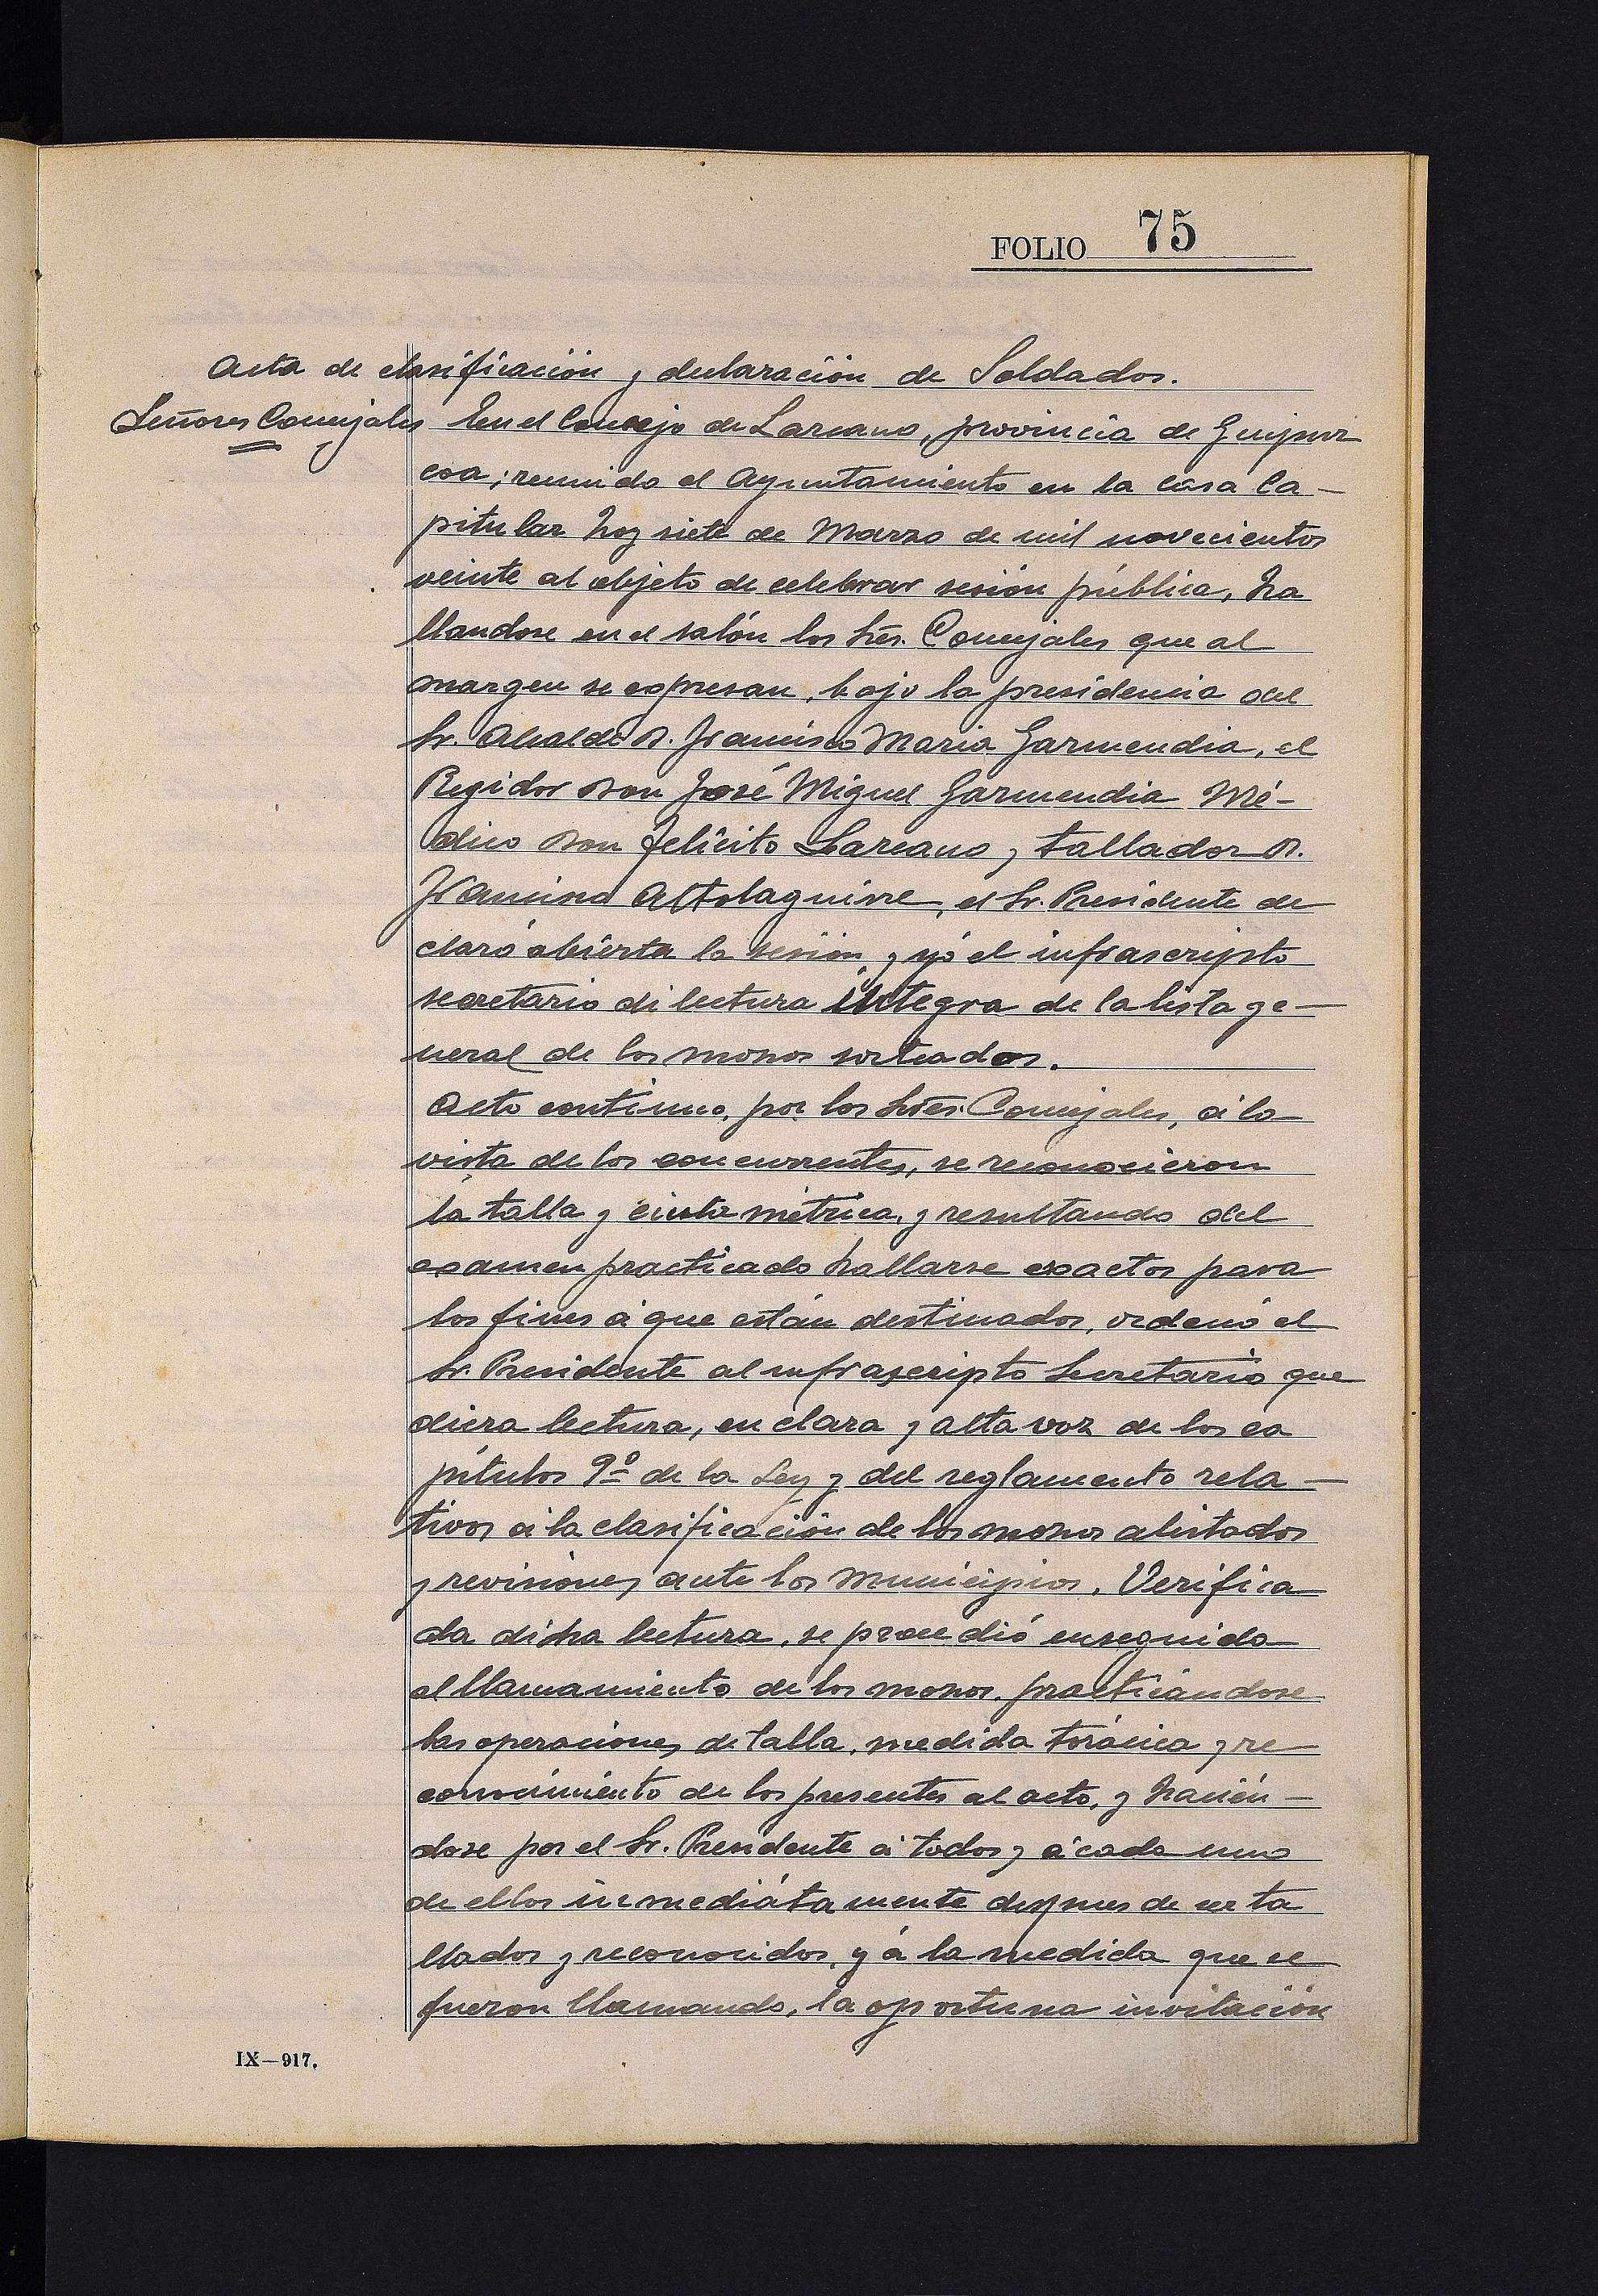 FOLIO 75
Acta de clasificación y declaración de Soldados.
Señores Concejales
En el Concejo de Lazcano, provincia de Guipuz
coa; reunido el Ayuntamiento en la casa Ca-
pitular hoy siete de Marzo de mil novecientos
veinte al objeto de celebrar sesión pública, ha
llandose en el salón los Sres. Concejales que al
margen se expresan, bajo la presidencia del
Sr. Alcalde D. Francisco Maria Garmendia, el
Regidor Don José Miguel Garmendia Mé-
dico Don Felícito Lazcano y tallador D.
Francisco Altolaguirre, el Sr. Presidente de
claró abierta la sesión y yó el infrascripto
secretario di lectura íntegra de la lista ge-
neral de los mozos sorteados.
Acto continuo, por los Sres. Concejales, á la
vista de los concurrentes, se reconocieron
la talla y cinta métrica, y resultando del
examen practicado hallarse exactos para
los fines á que están destinados, ordenó el
Sr. Presidente al infrascripto Secretario que
diera lectura, en clara y alta voz de los ca
pítulos 9º de la Ley y del reglamento rela-
tivos á la clasificación de los mozos alistados
y revisiones ante los Municipios. Verifica
da dicha lectura, se procedió enseguida
al llamamiento de los mozos, practicándose
las operaciones de talla, medida torácica y re
conocimiento de los presentes al acto, y hacién-
dose por el Sr. Presidente á todos y á cada uno
de ellos inmediátamente despues de ser ta
llados y reconocidos, y á la medida que se
fueron llamando, la oportuna invitación
IX—917.